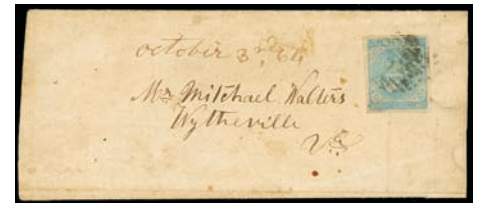 october 3rd, 64
Mr Mitchael Walters
Wytheville
Va